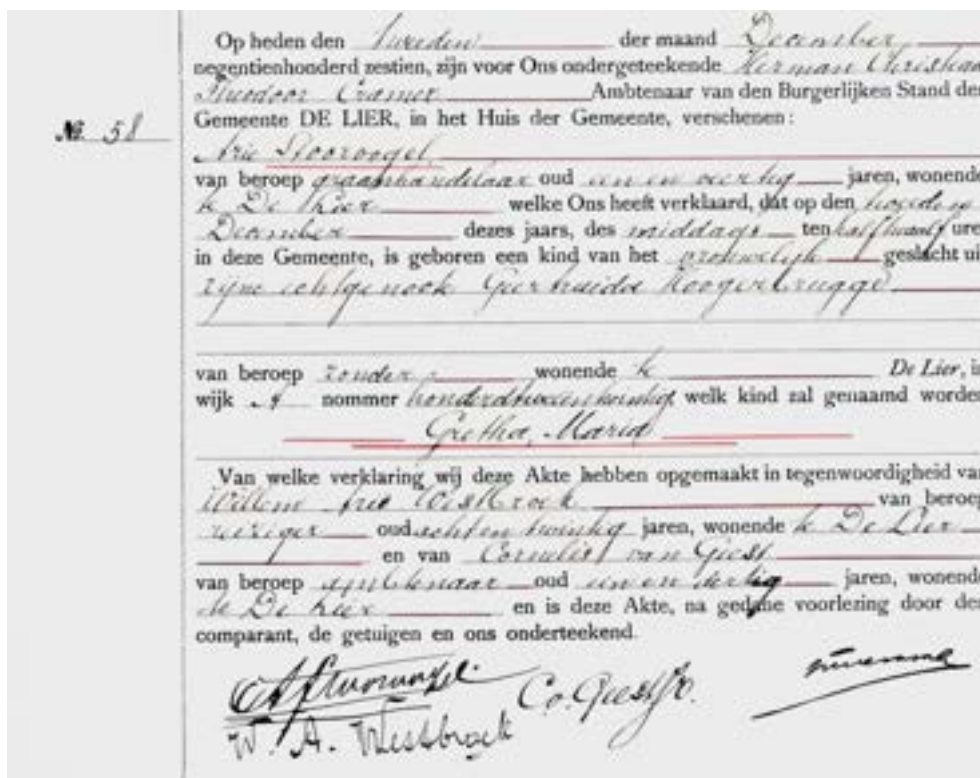 Op heden den tweeden der maand December
negentienhonderd zestien, zijn voor Ons ondergeteekende Herman Christiaan
Theodoor Cramer Ambtenaar van den Burgerlijken Stand der
Gemeente DE LIER, in het Huis der Gemeente, verschenen:
№ 58
Arie Stoorvogel
van beroep graanhandelaar oud een en veertig jaren, wonende
te De Lier welke Ons heeft verklaard, dat op den tweeden
December dezes jaars, des middags ten half twaalf ure
in deze Gemeente, is geboren een kind van het vrouwelijk geslacht uit
zijne echtgenoot Geertruida Hoogerbrugge
van beroep zonder wonende te De Lier, in
wijk A nommer honderdtweeentwintig welk kind zal genaamd worden
Gretha Maria
Van welke verklaring wij deze Akte hebben opgemaakt in tegenwoordigheid van
Willem Arie Westbroek van beroep
reiziger oud acht en twintig jaren, wonende te De Lier
en van Cornelis van Geest
van beroep ambtenaar oud een en dertig jaren, wonende
te De Lier en is deze Akte, na gedane voorlezing door den
comparant, de getuigen en ons onderteekend.
A Stoorvogel.
Co. Geest Jr.
W. A. Westbroek